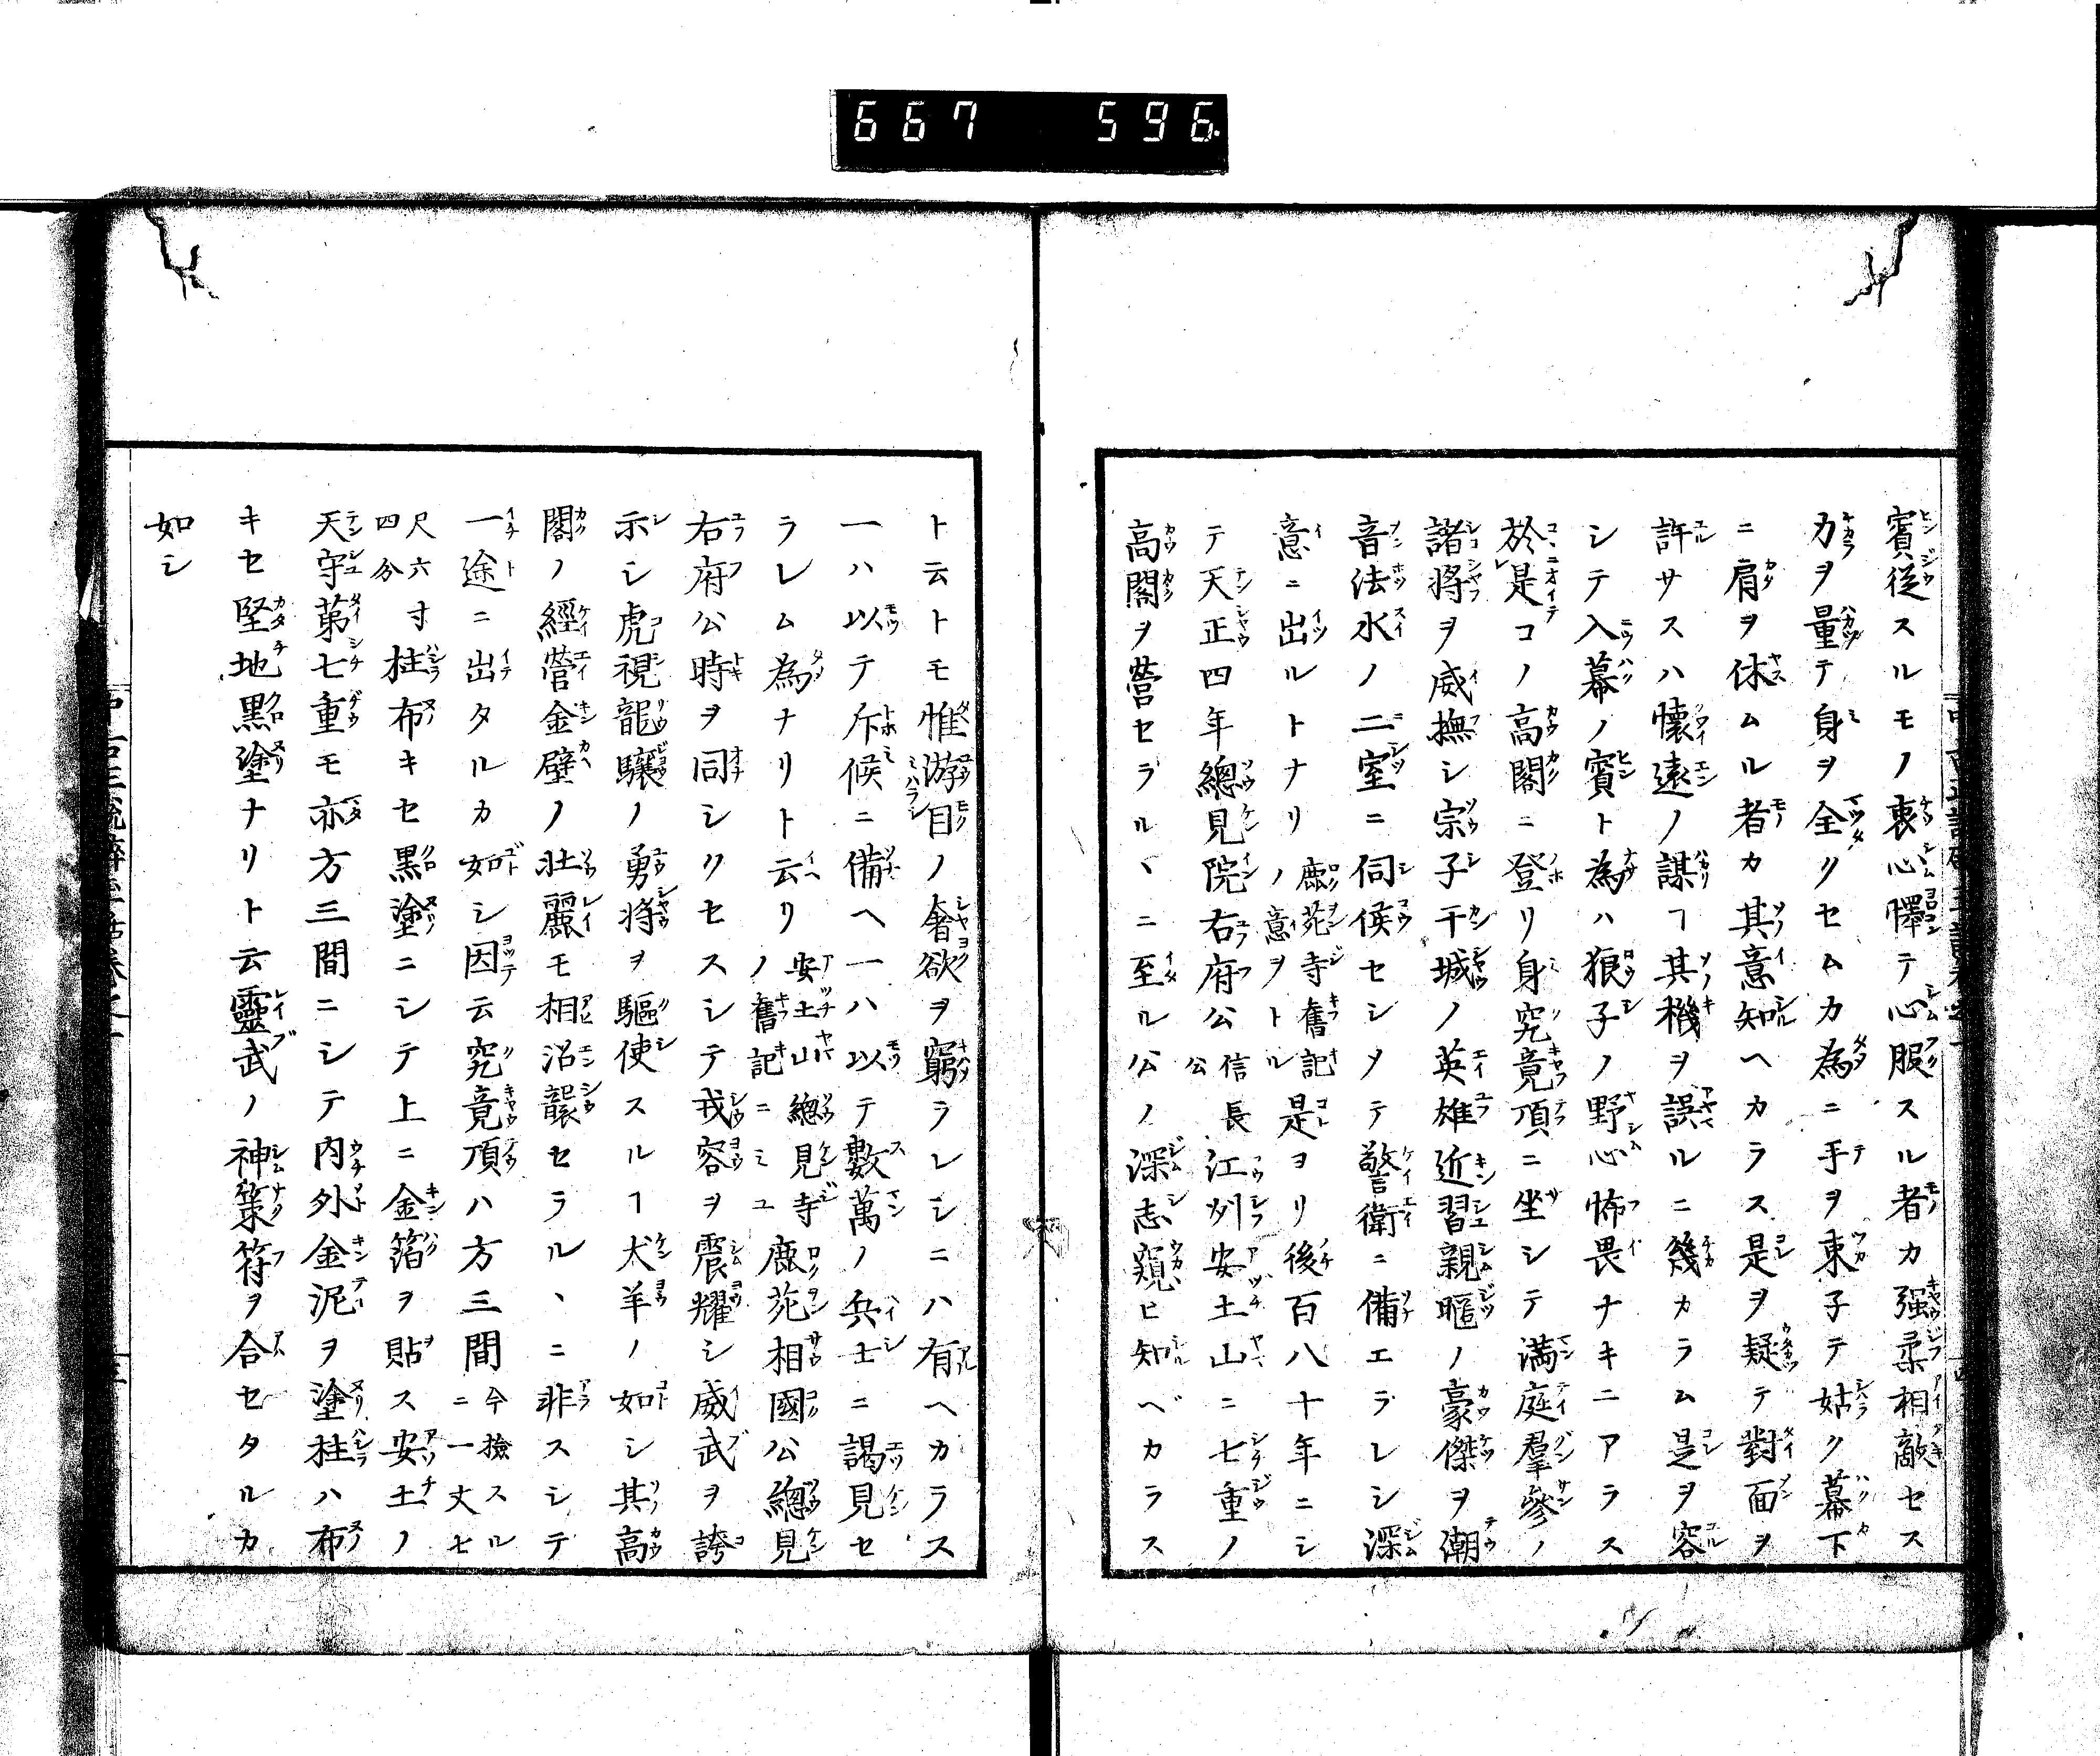 667 596
賓従スルモノ衷心懌テ心服スル者カ强柔相敵セス
力ヲ量テ身ヲ全クセムカ為ニ手ヲ束子テ姑ク幕下
ニ肩ヲ休ムル者カ其意知ヘカラス是ヲ疑テ對面ヲ
許サスハ懐遠ノ謀ヿ其機ヲ誤ルニ幾カラム是ヲ容
シテ入幕ノ賓ト為ハ狼子ノ野心怖畏ナキニアラス
於是コノ高閣ニ登リ身究竟頂ニ坐シテ満庭羣參ノ
諸將ヲ威撫シ宗子干城ノ英雄近習親暱ノ豪傑ヲ潮
音法水ノ二室ニ伺候セシメテ警衛ニ備エラレシ深
意ニ出ルトナリ鹿苑寺舊記ノ意ヲトル是ヨリ後百八十年ニシ
テ天正四年總見院右府公信長公江州安土山ニ七重ノ
高閣ヲ營セラルヽニ至ル公ノ深志窺ヒ知ベカラス
トモ云トモ惟游目ノ奢欲ヲ窮ラレシニハ有ヘカラス
一ハ以テ斥候ニ備ヘ一ハ以テ數萬ノ兵士ニ謁見セ
ラレム為ナリト云リ安土山總見寺ノ舊記ニミユ鹿苑相國公總見
右府公時ヲ同シクセスシテ戎容ヲ震耀シ威武ヲ誇
示シ虎視龍驤ノ勇將ヲ驅使スルヿ犬羊ノ如シ其高
閣ノ經營金壁ノ壯麗モ相沿襲セラルヽニ非スシテ
一途ニ出タルカ如シ因云究竟頂ハ方三間今撿スルニ一丈七
尺六寸四分柱布キセ黒塗ニシテ上ニ金箔ヲ貼ス安土ノ
天守第七重モ亦方三間ニシテ内外金泥ヲ塗柱ハ布
キセ堅地黒塗ナリト云靈武ノ神策符ヲ合セタルカ
如シ